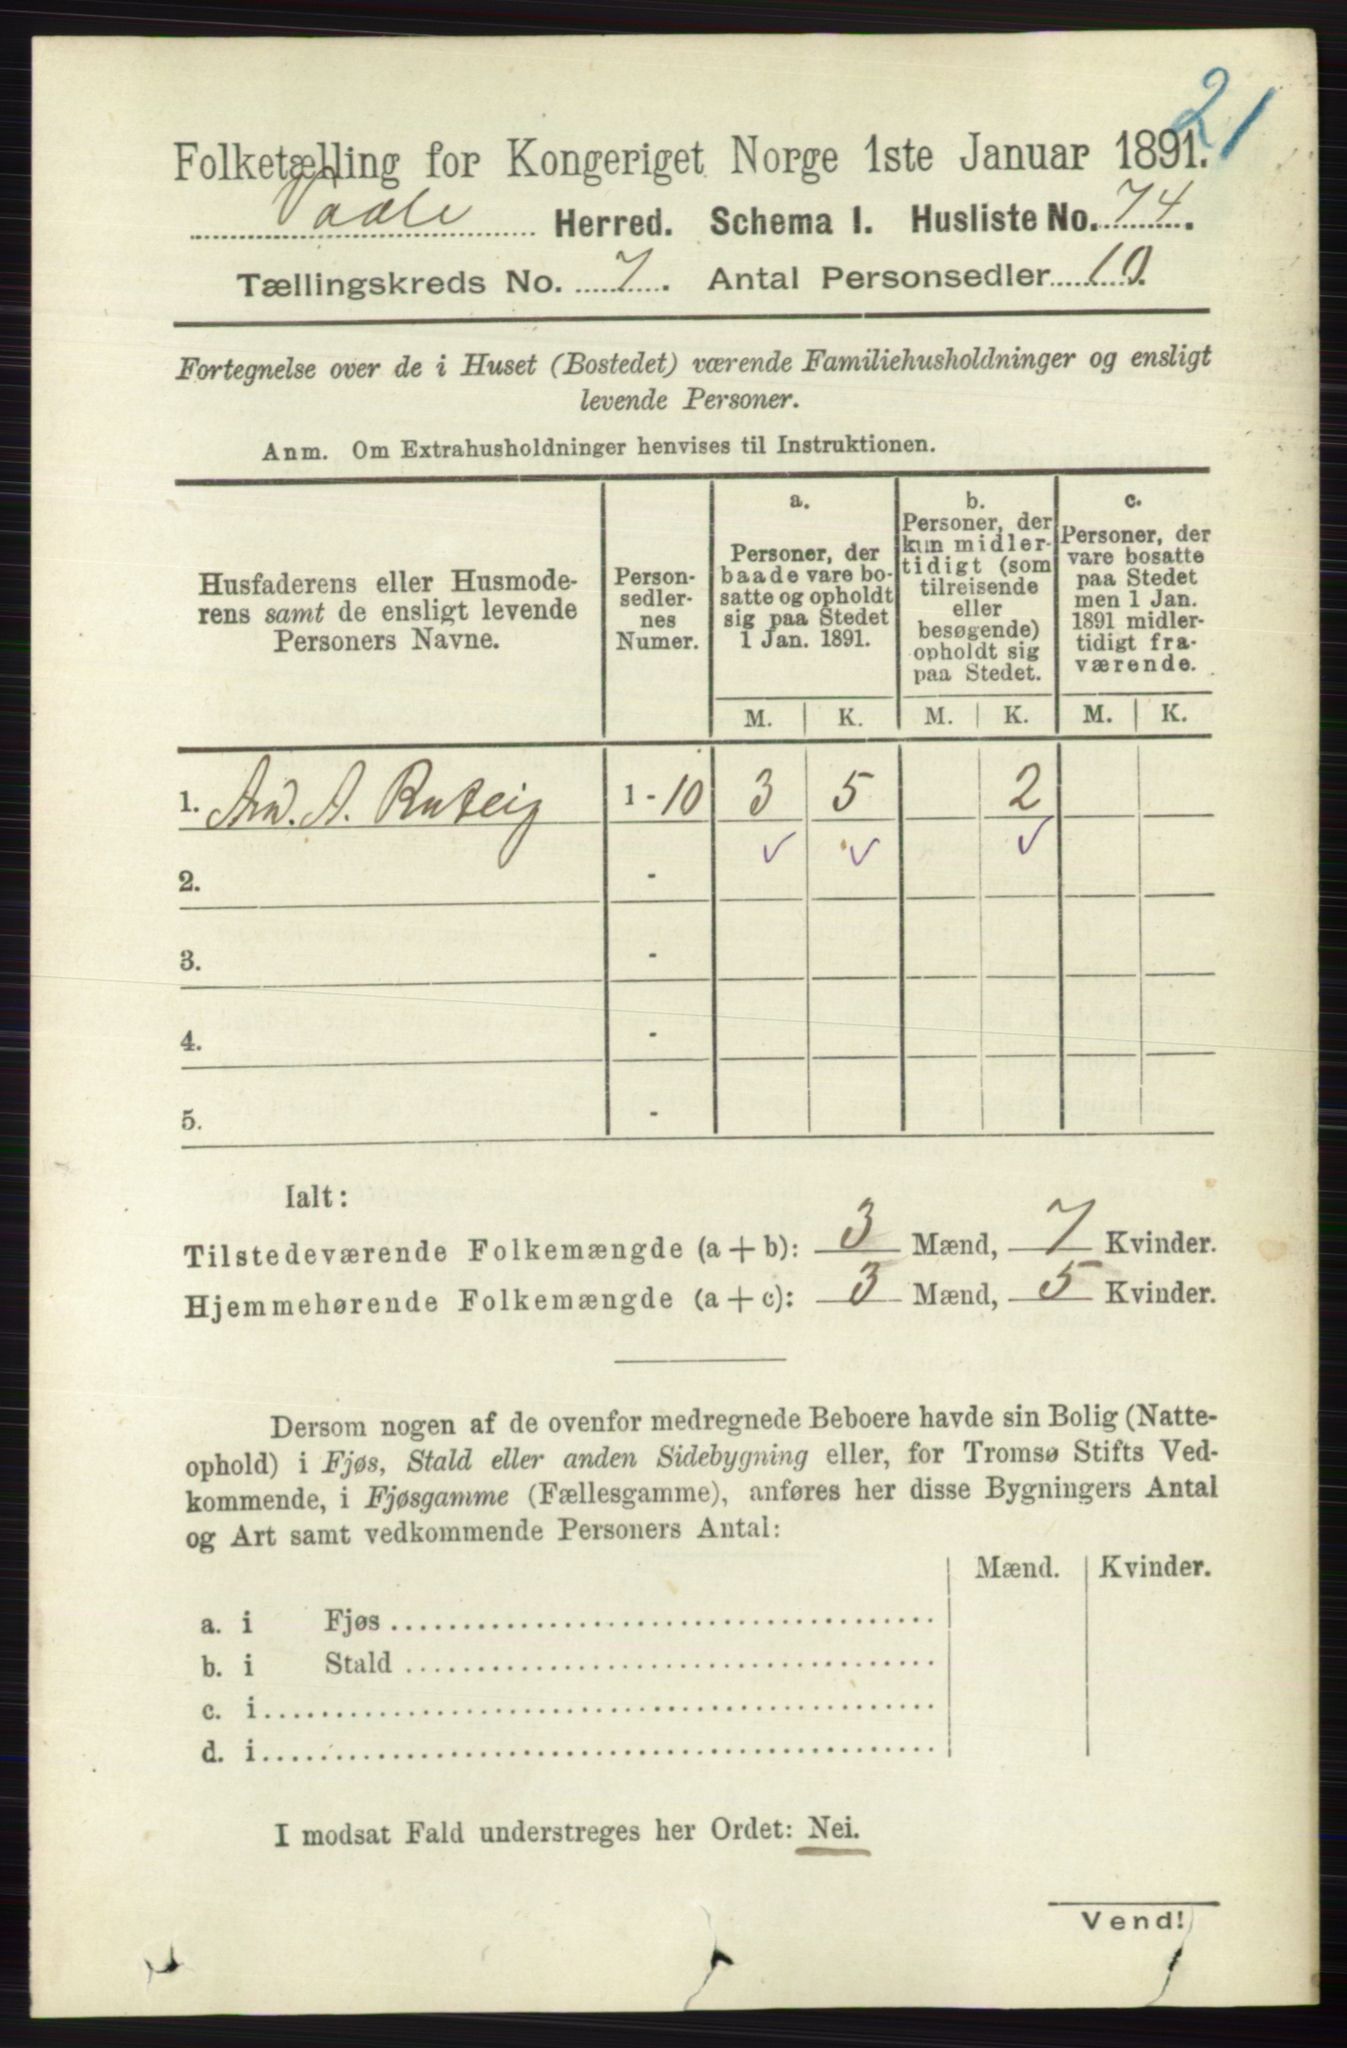 21
Folketælling for Kongeriget Norge 1ste Januar 1891.
Vaale Herred. Schema I. Husliste No. 74.
Tællingskreds No. 7. Antal Personsedler 10.
Fortegnelse over de i Huset (Bostedet) værende Familiehusholdninger og ensligt
levende Personer.
Anm. Om Extrahusholdninger henvises til Instruktionen.
Husfaderens eller Husmode-
rens samt de ensligt levende
Personers Navne.
Person-
sedler-
nes
Numer.
a.
Personer, der
baade vare bo-
satte og opholdt
sig paa Stedet
1 Jan. 1891.
b.
Personer, der
kun midler-
tidigt (som
tilreisende
eller
besøgende)
opholdt sig
paa Stedet.
c.
Personer, der
vare bosatte
paa Stedet
men 1 Jan.
1891 midler-
tidigt fra-
værende.
M. K. M. K. M. K.
1. And. A. 1 - 10 3 5 2
2. - ✓ ✓ ✓
3. -
4. -
5. -
Ialt:
Tilstedeværende Folkemængde (a + b): 3 Mænd, 7 Kvinder.
Hjemmehørende Folkemængde (a + c): 3 Mænd, 5 Kvinder.
Dersom nogen af de ovenfor medregnede Beboere havde sin Bolig (Natte-
ophold) i Fjøs, Stald eller anden Sidebygning eller, for Tromsø Stifts Ved-
kommende, i Fjøsgamme (Fællesgamme), anføres her disse Bygningers Antal
og Art samt vedkommende Personers Antal:
Mænd. Kvinder.
a. i Fjøs
b. i Stald
c. i
d. i
I modsat Fald understreges her Ordet: Nei.
Vend!